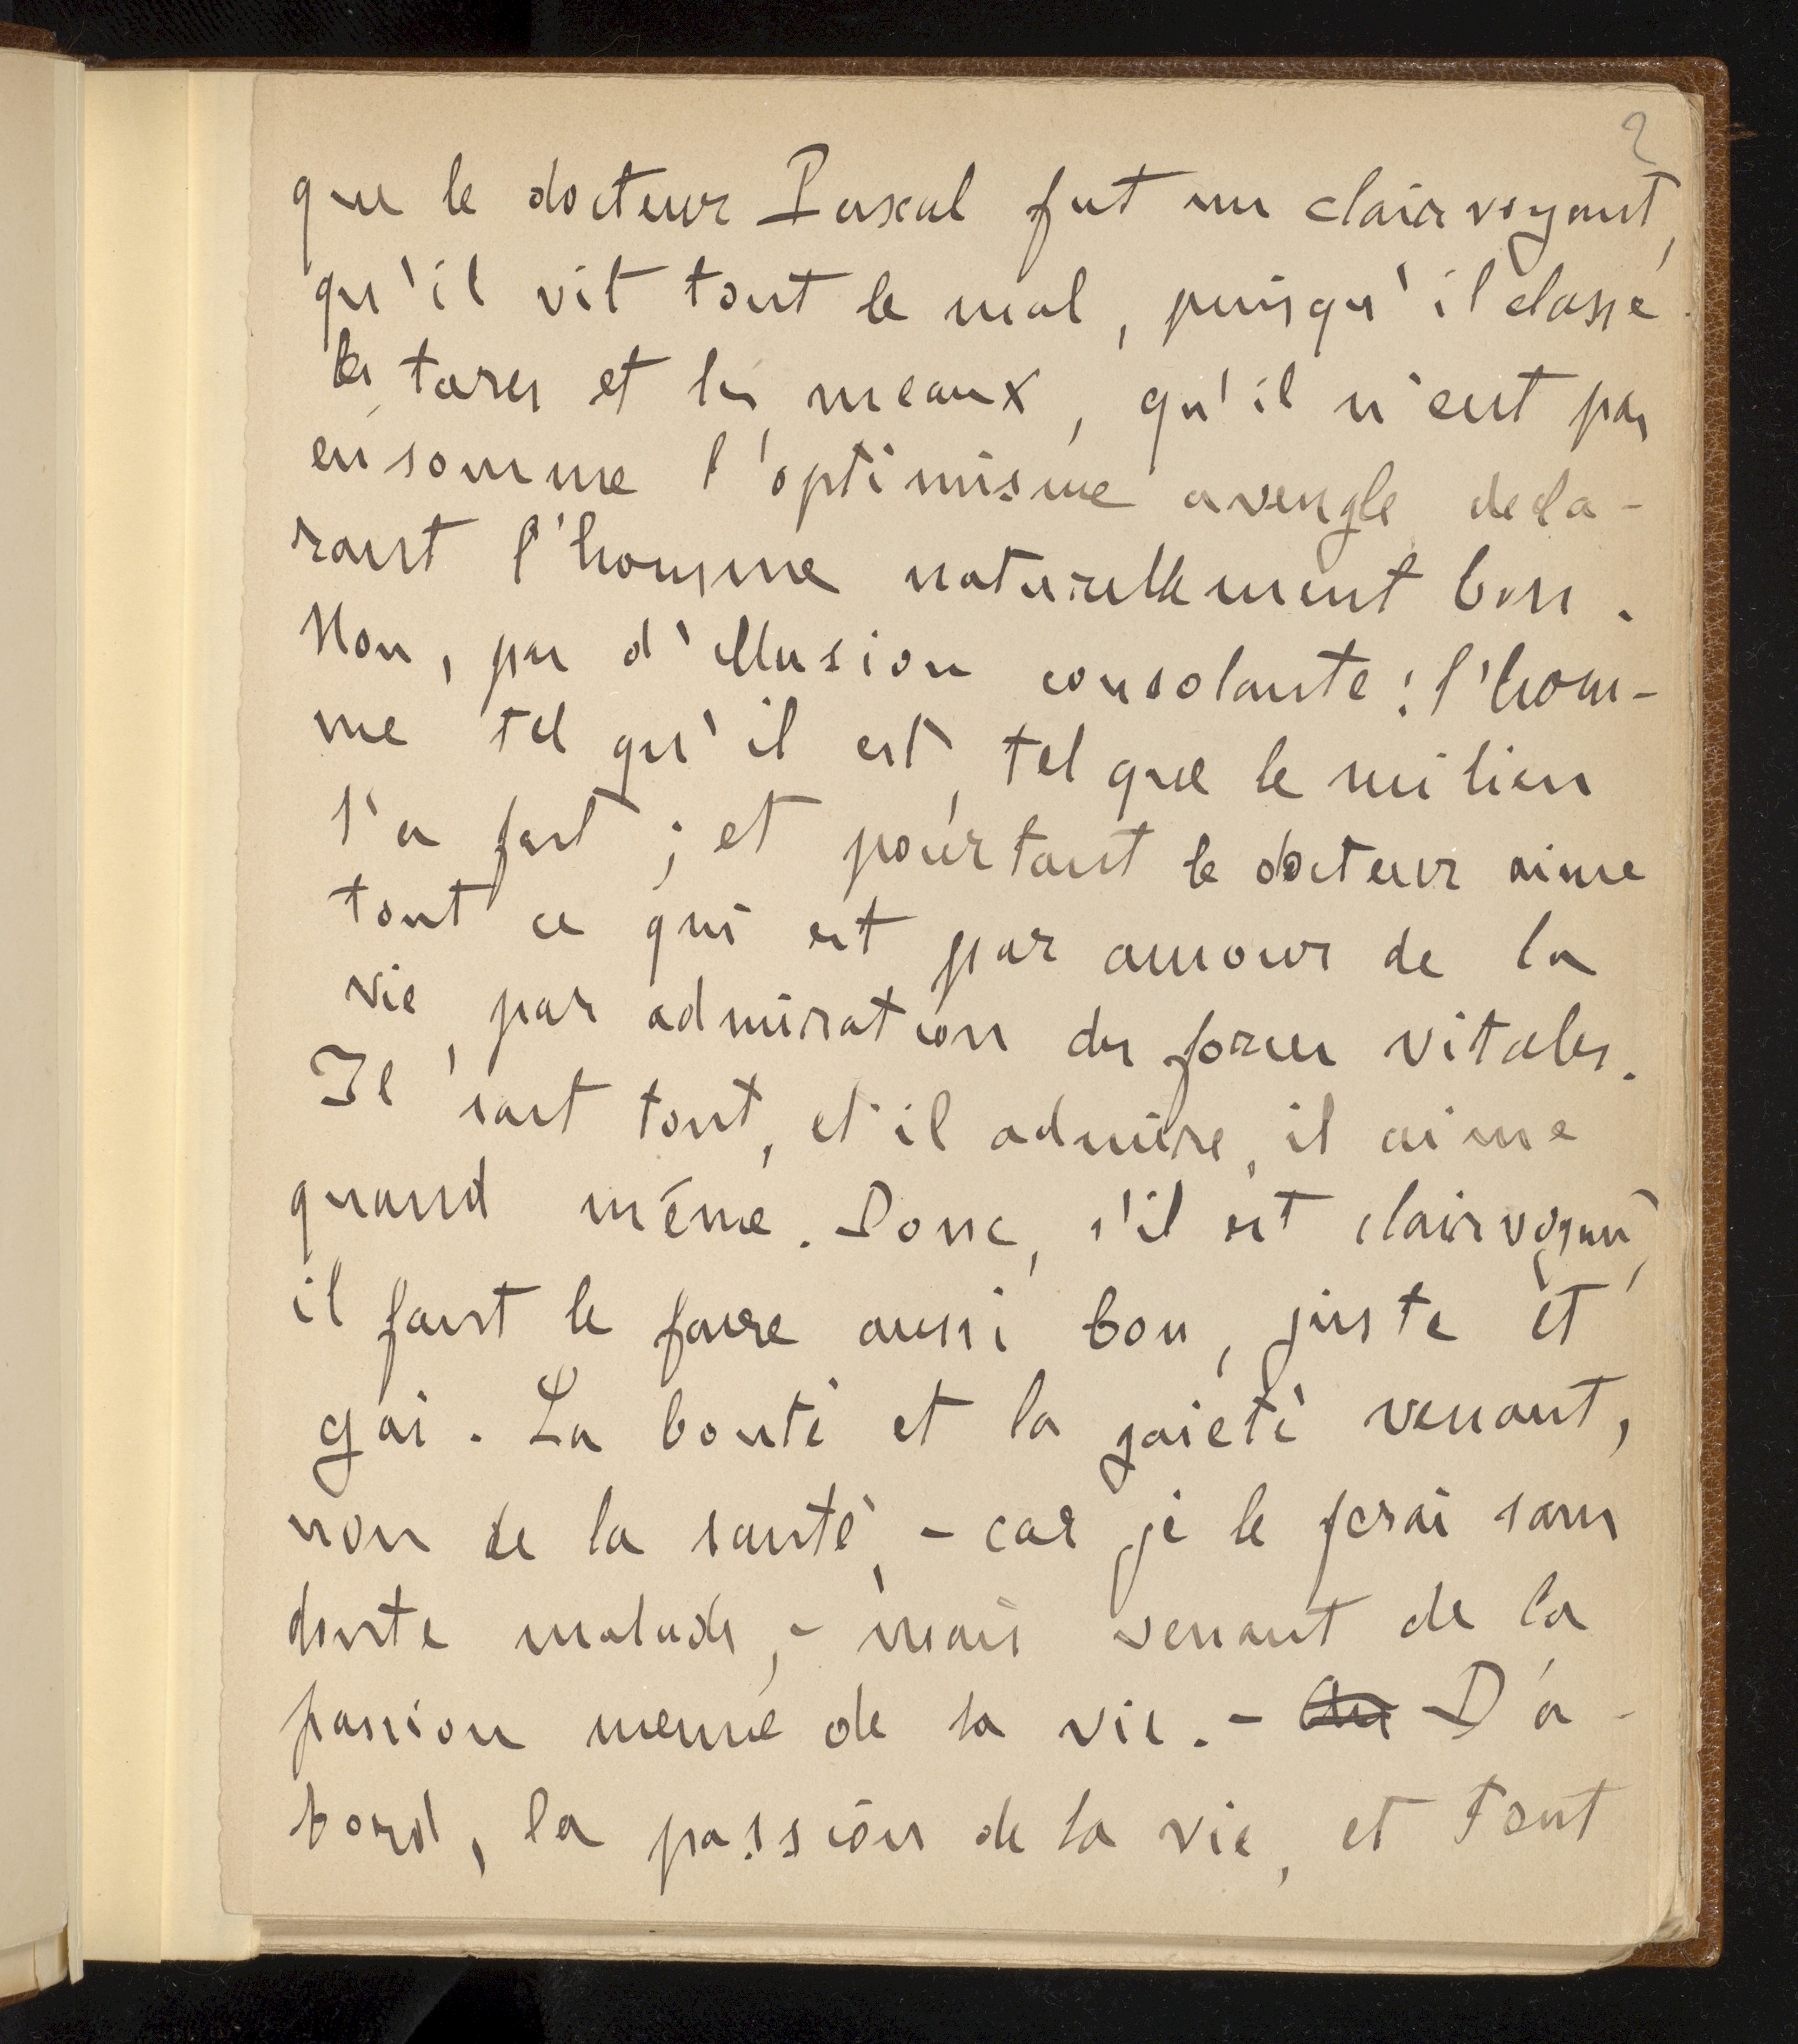 2
que le docteur Pascal fut un clairvoyant,
qu'il vit tout le mal, puisqu'il classe
les tares et les meaux, qu'il n'eut pas
en somme l'optimisme aveugle decla-
rant l'homme naturellement bon.
Non, pas d'illusion consolante : l'hom-
me tel qu'il est, tel que le milieu
l'a fait ; et pourtant le docteur aime
tout ce qui est par amour de la
vie, par admiration des forces vitales.
Il sait tout, et il admire, il aime
quand même. Donc, s'il est clairvoyant,
il faut le faire aussi bon, juste et
gai. La bonté et la gaieté venant,
non de la santé, - car je le ferai sans
doute malade, - mais venant de la
passion meme de la vie. - D'a-
bord, la passion de la vie, et tout